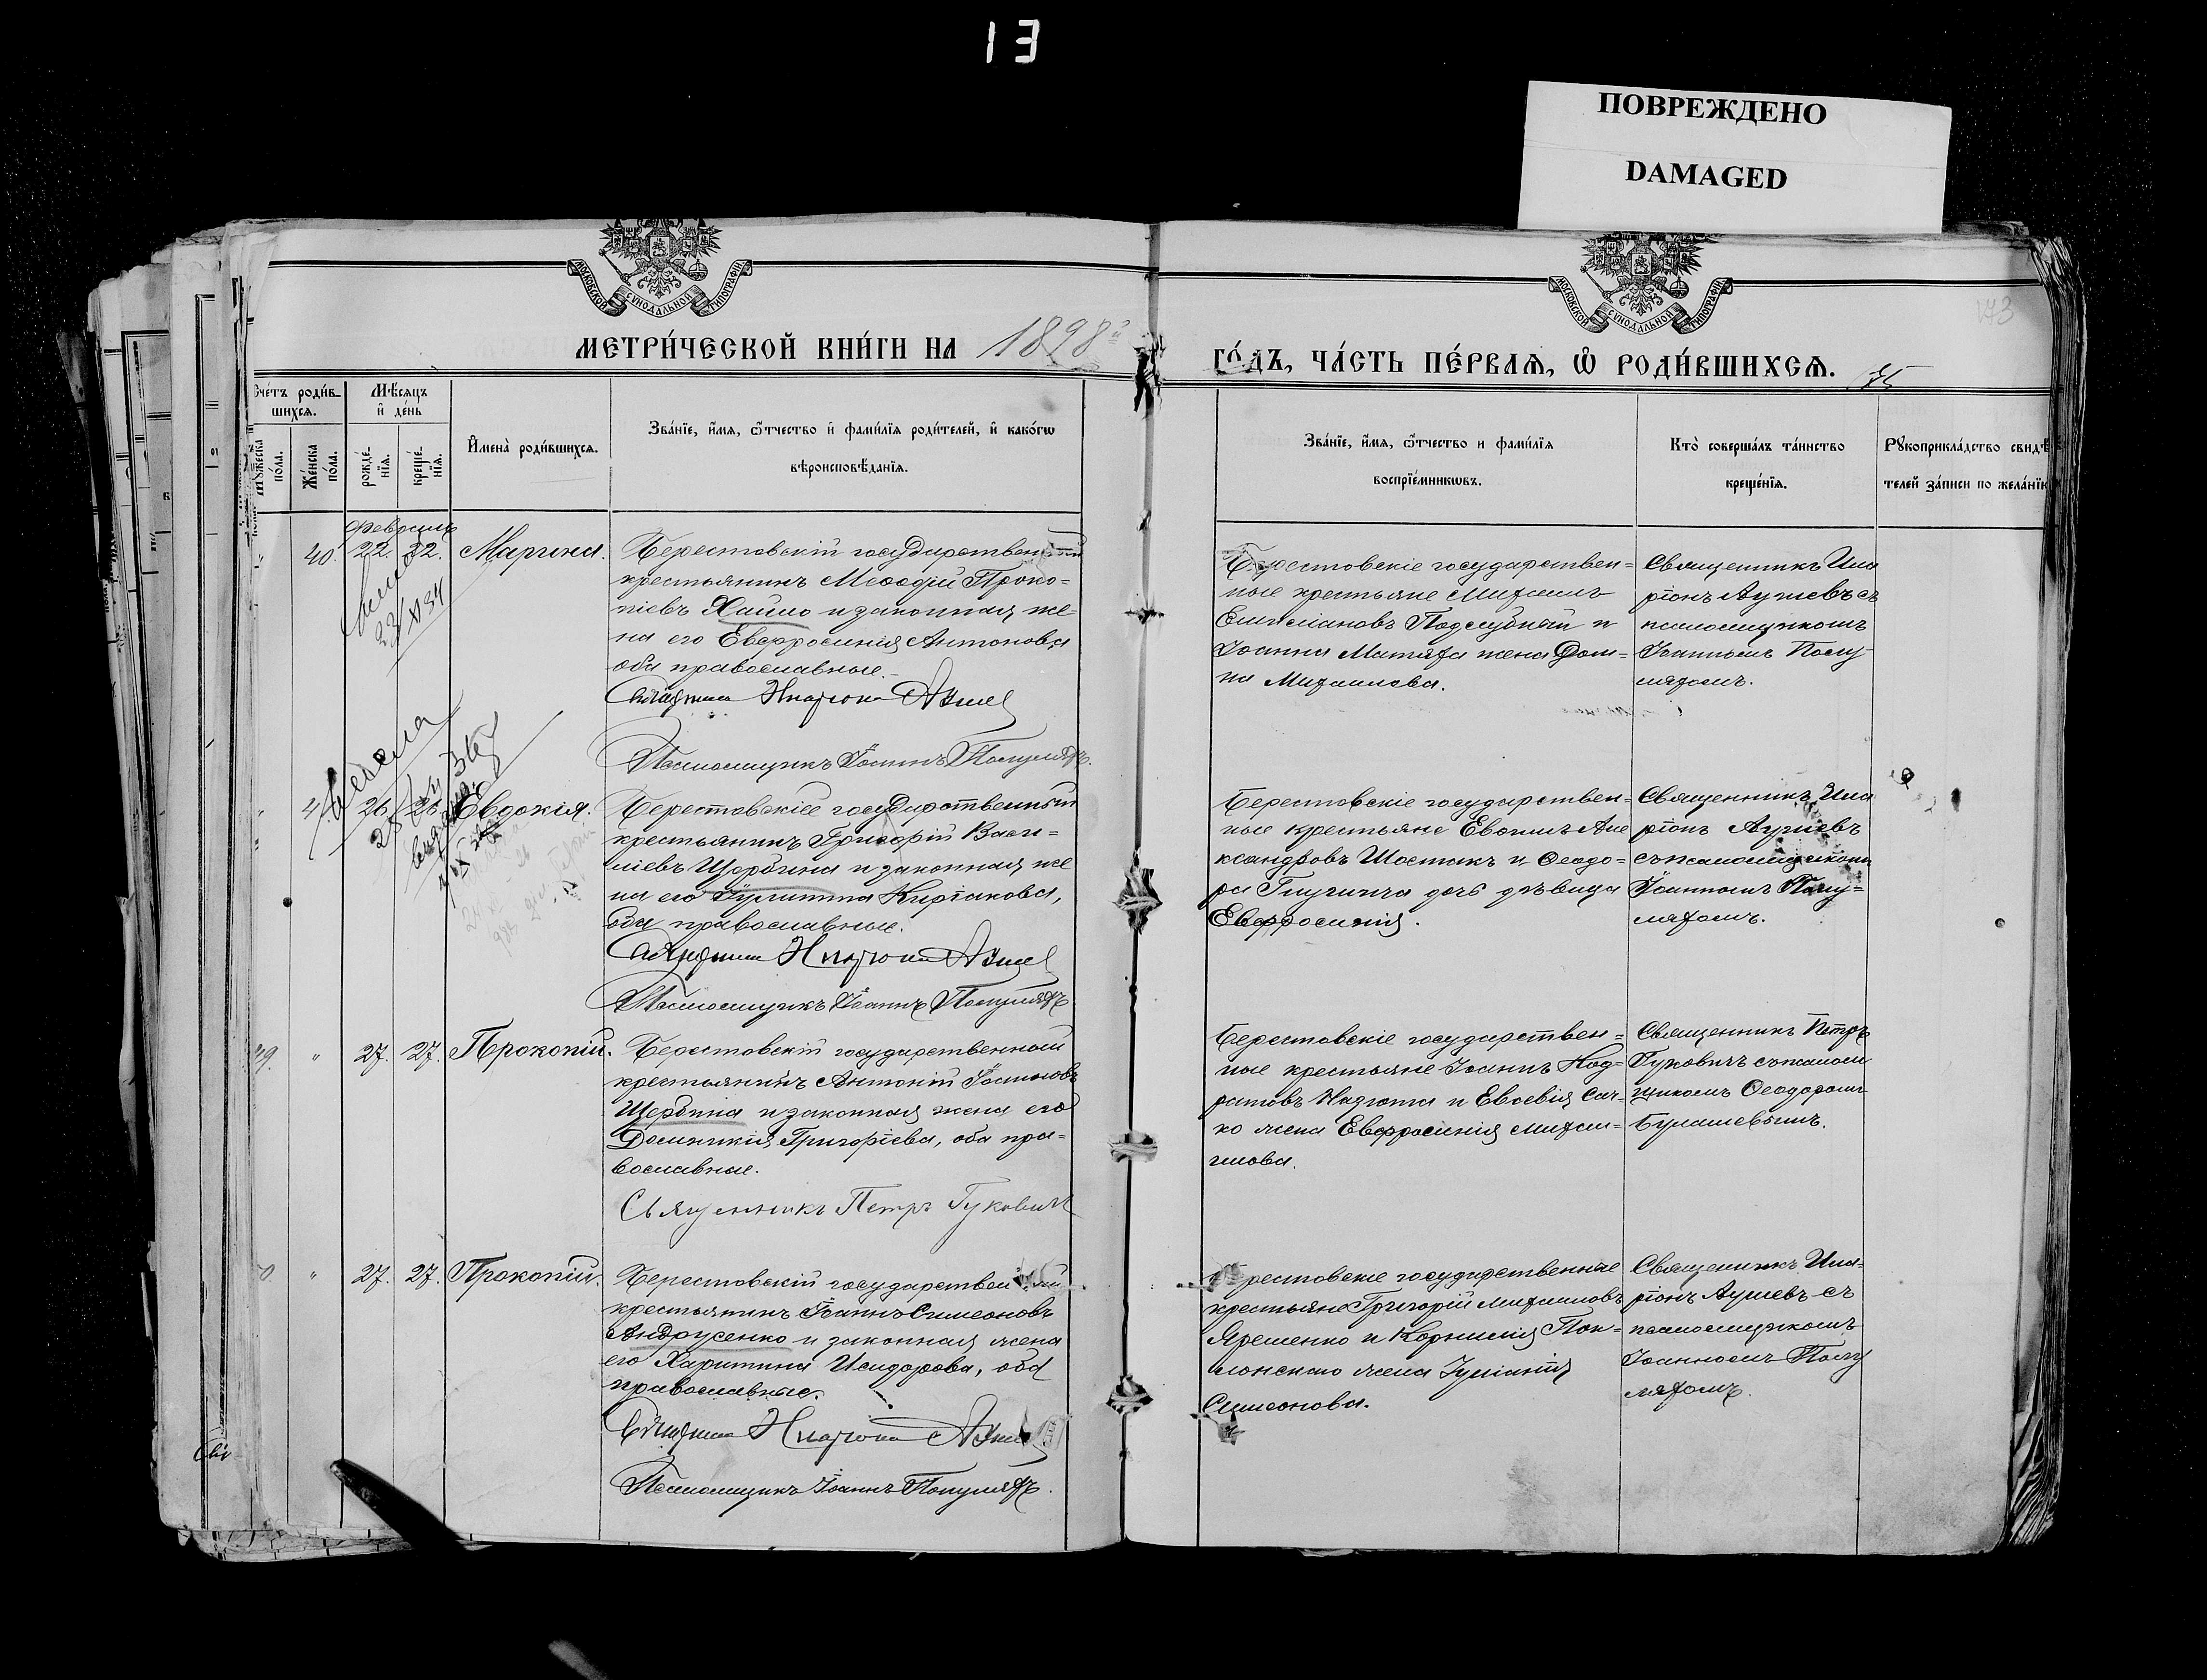 13
ПОВРЕЖДЕНО
DAMAGED
МОСКОВСКОЙ СѴНОДАЛЬНОЙ ТИПОГРАФІИ
МОСКОВСКОЙ СѴНОДАЛЬНОЙ ТИПОГРАФІИ
173
МЕТРИ́ЧЕСКОЙ КНИ́ГИ НА 1898й
ГО́ДЪ, ЧА́СТЬ ПЕ́РВАЯ, Ѽ РОДИ́ВШИХСЯ.
75
Сче́тъ роди́в-
шихся.
Мѣ́сяцъ
и҆ де́нь
Му́жеска
по́ла.
Же́нска
по́ла.
рожде́-
нїя.
креще́-
нїя.
И҆мена̀ роди́вшихся.
Зва́нїе, и҆́мя, ѻ҆́тчество и҆ фами́лїя роди́телей, и҆ како́гѡ
вѣроисповѣ́данїя.
Зва́нїе, и҆́мя, ѻ҆́тчество и фами́лїя
воспрїе́мникѡвъ.
Кто̀ соверша́лъ та́инство
креще́нїя.
Рꙋкоприкла́дство свидѣ́-
телей за́писи по жела́нїю
Февраль
40. 22. 22. Марина.
Берестовскій государственный
крестьянинъ Меѳодій Проко-
піевъ Хайло и законная же-
на его Евфросинія Антонова
оба православные.
Священникъ Иларіонъ
Псаломщикъ Іоаннъ Полуляхъ.
Берестовскіе государствен-
ные крестьяне Михаилъ
Емиліановъ Поддубный и
Іоанна Матяха жена Дом-
на Михаилова.
Священникъ Ила
ріонъ Ауліевъ съ
псаломщикомъ
Іоанномъ Полу-
ляхомъ.
41. 26. 26. Евдокія.
Берестовскіе государственный
крестьянинъ Григорій Васи-
ліевъ Щербина и законная же
на его Іулитта Киріакова,
оба православные.
Священникъ Иларіонъ
Псаломщикъ Іоаннъ Полуляхъ
Берестовскіе государствен-
ные крестьяне Евѳимъ Але
ксандровъ Шостакъ и Ѳеодо-
ра дочь дѣвица
Евфросинія.
Священникъ Ила
ріонъ Ауліевъ
съ псаломщикомъ
Іоанномъ Полу-
ляхомъ.
49. 27. 27. Прокопій.
Берестовскій государственный
крестьянинъ Антоній Іоанновъ
Щербина и законная жена его
Домникія Григоріева, оба пра-
вославные.
Священникъ Петръ Гуковичъ
Берестовскіе государствен-
ные крестьяне Іоаннъ Код-
ратовъ и Евсевія Сач-
ко жена Евфросинія Миха-
илова.
Священникъ Петръ
Гуковичъ съ псалом
щикомъ Ѳеодоромъ
Булашевымъ.
27. 27. Прокопій.
Берестовскій государственный
крестьянинъ Іоаннъ Симеоновъ
Андрусенко и законная жена
его Харитина Исидорова, оба
православные.
Священникъ Иларіонъ
Псаломщикъ Іоаннъ Полуляхъ.
Берестовскіе государственные
крестьяне Григорій Михаиловъ
Яременко и Корнилія Пок-
лонскаго жена Іуліанія
Симеонова.
Священникъ Ила-
ріонъ Ауліевъ съ
псаломщикомъ
Іоанномъ Полу
ляхомъ.